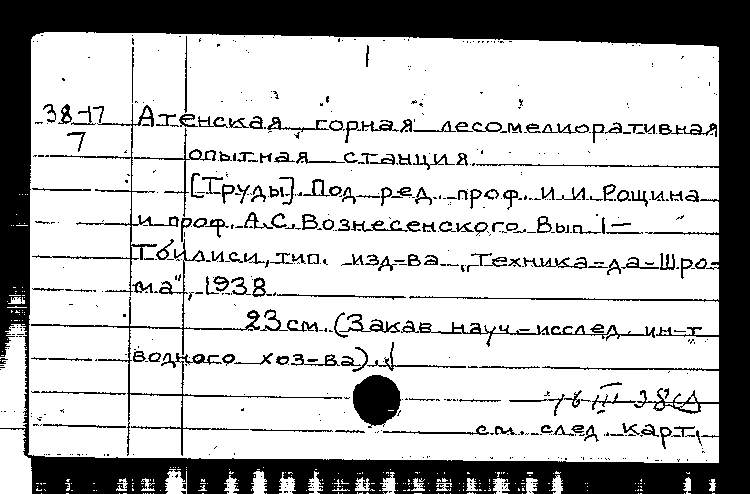 38-17 Атенская горная лесомелиоративная
7
опытная станция.
[Труды]. Под ред. проф. И. И. Рощина
и проф. А. С. Вознесенского. Вып. 1–
Тбилиси, тип. изд-ва „Техника-да-Шро-
ма", 1938.
23 см. (Закав. науч.-исслед. ин-т
водного хоз-ва).
16 III 38
см. след. карт.